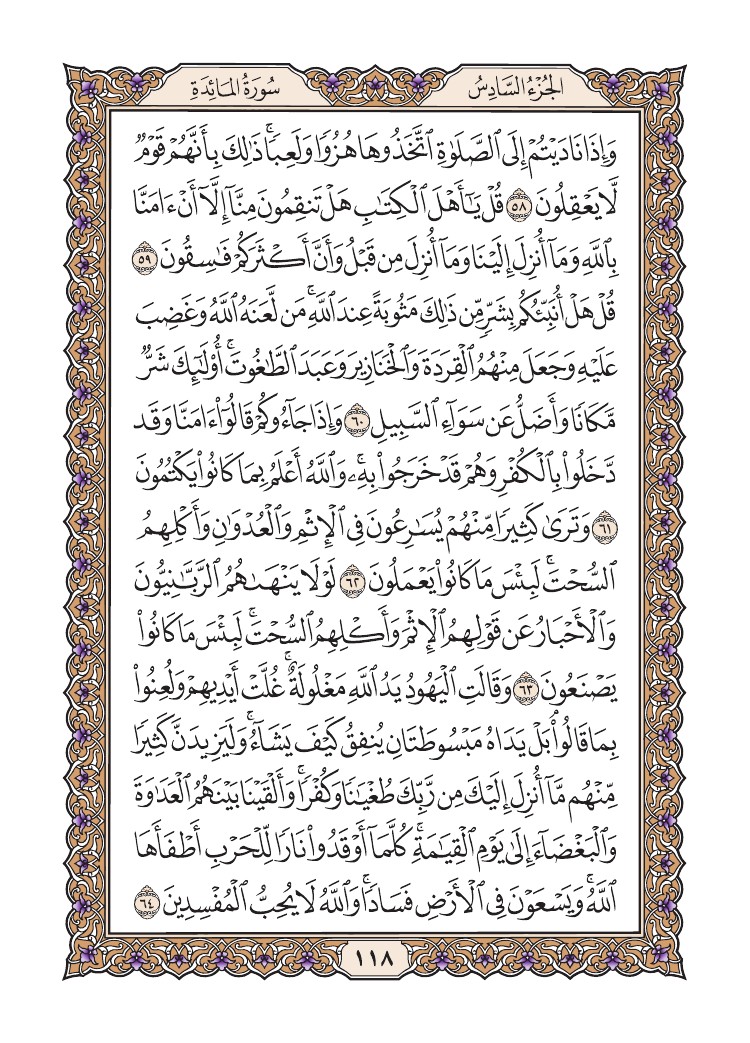 الجُزْءُ السَّادِسُ
سُورَةُ المَائِدَةِ
وَإِذَا نَادَيْتُمْ إِلَى ٱلصَّلَوٰةِ ٱتَّخَذُوهَا هُزُوٗا وَلَعِبٗاۚ ذَٰلِكَ بِأَنَّهُمْ قَوْمٞ
لَّا يَعْقِلُونَ ٥٨ قُلْ يَٰٓأَهْلَ ٱلْكِتَٰبِ هَلْ تَنقِمُونَ مِنَّآ إِلَّآ أَنْ ءَامَنَّا
بِٱللَّهِ وَمَآ أُنزِلَ إِلَيْنَا وَمَآ أُنزِلَ مِن قَبْلُ وَأَنَّ أَكْثَرَكُمْ فَٰسِقُونَ ٥٩
قُلْ هَلْ أُنَبِّئُكُم بِشَرّٖ مِّن ذَٰلِكَ مَثُوبَةً عِندَ ٱللَّهِۚ مَن لَّعَنَهُ ٱللَّهُ وَغَضِبَ
عَلَيْهِ وَجَعَلَ مِنْهُمُ ٱلْقِرَدَةَ وَٱلْخَنَازِيرَ وَعَبَدَ ٱلطَّٰغُوتَۚ أُوْلَٰٓئِكَ شَرّٞ
مَّكَانٗا وَأَضَلُّ عَن سَوَآءِ ٱلسَّبِيلِ ٦٠ وَإِذَا جَآءُوكُمْ قَالُوٓاْ ءَامَنَّا وَقَد
دَّخَلُواْ بِٱلْكُفْرِ وَهُمْ قَدْ خَرَجُواْ بِهِۦۚ وَٱللَّهُ أَعْلَمُ بِمَا كَانُواْ يَكْتُمُونَ
٦١ وَتَرَىٰ كَثِيرٗا مِّنْهُمْ يُسَٰرِعُونَ فِي ٱلْإِثْمِ وَٱلْعُدْوَٰنِ وَأَكْلِهِمُ
ٱلسُّحْتَۚ لَبِئْسَ مَا كَانُواْ يَعْمَلُونَ ٦٢ لَوْلَا يَنْهَىٰهُمُ ٱلرَّبَّٰنِيُّونَ
وَٱلْأَحْبَارُ عَن قَوْلِهِمُ ٱلْإِثْمَ وَأَكْلِهِمُ ٱلسُّحْتَۚ لَبِئْسَ مَا كَانُواْ
يَصْنَعُونَ ٦٣ وَقَالَتِ ٱلْيَهُودُ يَدُ ٱللَّهِ مَغْلُولَةٌۚ غُلَّتْ أَيْدِيهِمْ وَلُعِنُواْ
بِمَا قَالُواْۘ بَلْ يَدَاهُ مَبْسُوطَتَانِ يُنفِقُ كَيْفَ يَشَآءُۚ وَلَيَزِيدَنَّ كَثِيرٗا
مِّنْهُم مَّآ أُنزِلَ إِلَيْكَ مِن رَّبِّكَ طُغْيَٰنٗا وَكُفْرٗاۚ وَأَلْقَيْنَا بَيْنَهُمُ ٱلْعَدَٰوَةَ
وَٱلْبَغْضَآءَ إِلَىٰ يَوْمِ ٱلْقِيَٰمَةِۚ كُلَّمَآ أَوْقَدُواْ نَارٗا لِّلْحَرْبِ أَطْفَأَهَا
ٱللَّهُۚ وَيَسْعَوْنَ فِي ٱلْأَرْضِ فَسَادٗاۚ وَٱللَّهُ لَا يُحِبُّ ٱلْمُفْسِدِينَ ٦٤
١١٨